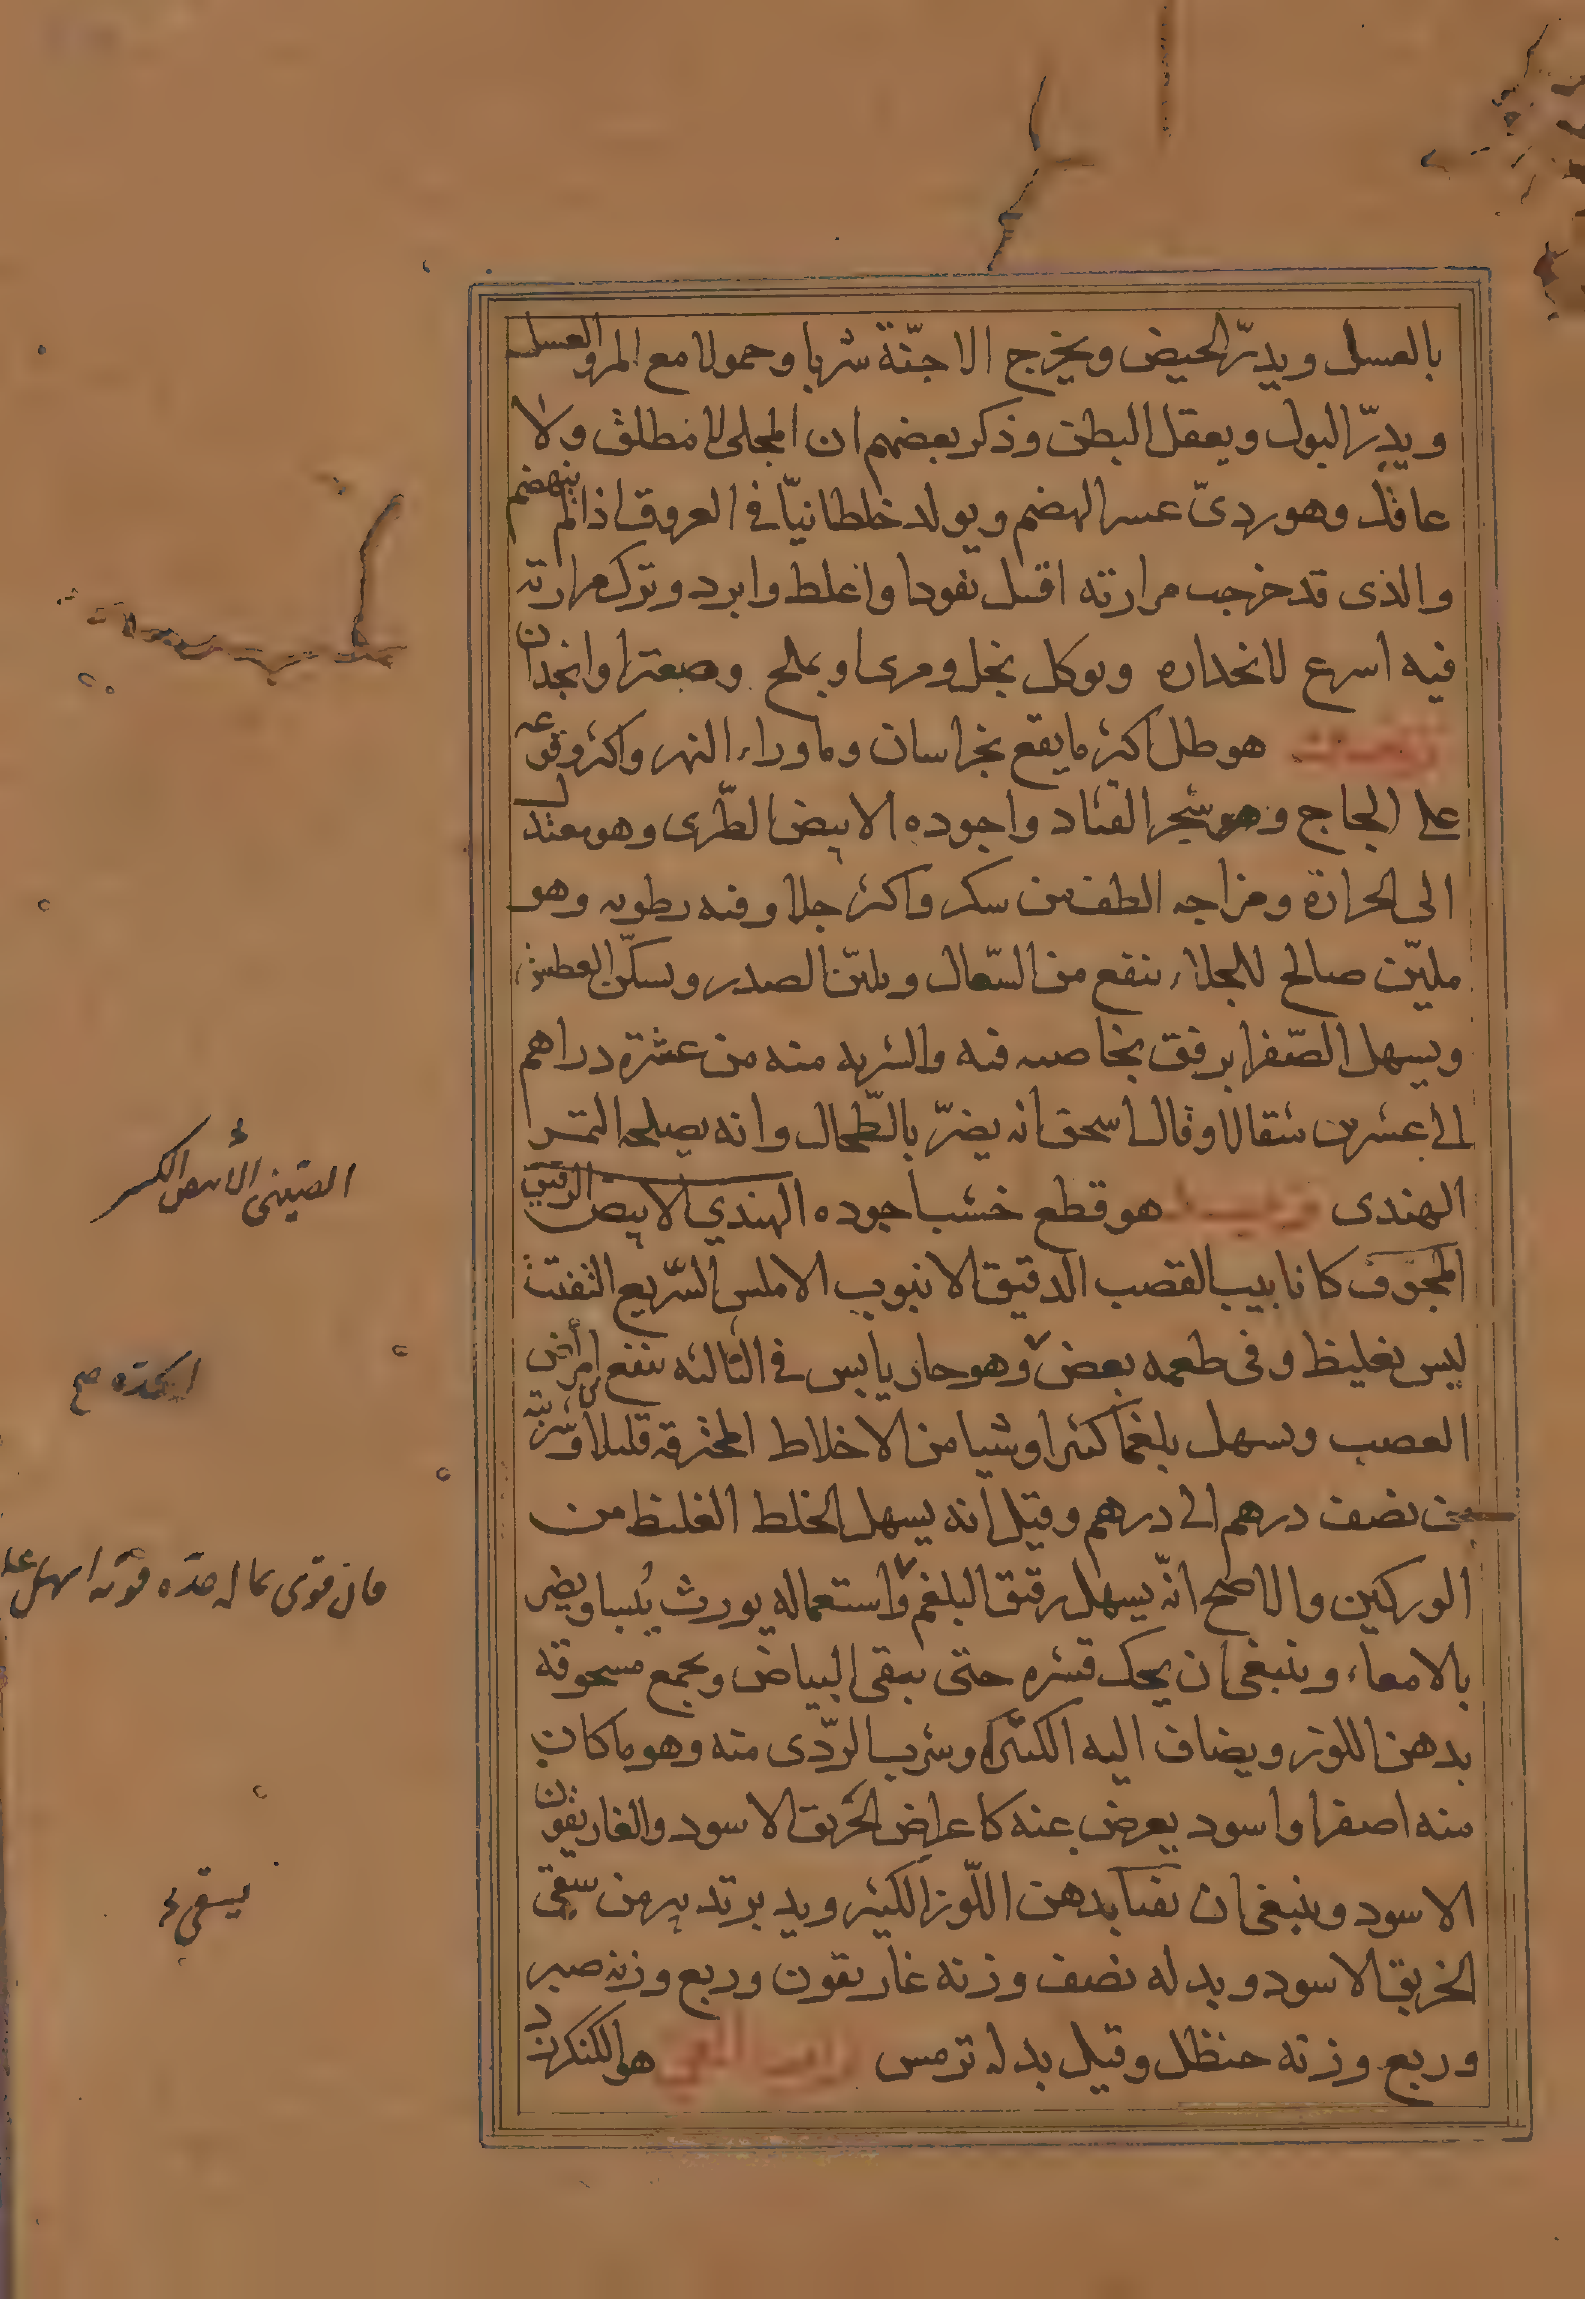 بالعسل ويدرّ الحيض ويخرج الاجنّة شربا وحمولا مع المر والعسل
ويدرّ البول ويعقل البطن وذكر بعضهم ان المجلى لا مطلق ولا
عاقل وهو ردىّ عسر الهضم ويولد خلطا نيّا فى العروق اذا لم ينهضم
والذى قد خرجت مرارته اقل نفوذا واغلظ وابرد وترك مرارته
فيه اسرع لانحداره ويوكل بخل ومرى او بملح وصعتر او انجدان
ترنجبين هو طل اكثر ما يقع بخراسان وماوراء النهر واكثر وقوعه
على الحاج وهو شجر القتاد واجوده الابيض الطّرى وهو معتدل
الى الحرارة ومزاجه الطف من سكر واكثر جلا وفيه رطوبه وهو
مليّن صالح للجلاء ينفع من السّعال ويلين الصدر ويسكّن العطش
ويسهل الصّفرا برفق بخاصيه فيه والشربه منه من عشرة دراهم
الى عشرين مثقالا وقال اسحق انه يضرّ بالطّحال وانه يصلحه التمر
الهندى تربد هو قطع خشب اجوده الهندي الابيض الرقيق
المجوف كانابيب القصب الدقيق الانبوب الاملس السّريع التفتت
ليس بغليظ وفى طعمه بعض وهو حار يابس فى الثالثه ينفع امراض
العصب ويسهل بلغما كثيرا وشيا من الاخلاط المحترقه قليلا وشربته
من نصف درهم الى درهم وقيل انه يسهل الخلط الغليظ من
الوركين والاصح انّه يسهل رقيق البلغم واستعماله يورث يُبسا ويضر
بالامعاء وينبغى ان يحك قشره حتى يبقى البياض ويجمع مسحوقه
بدهن اللوز ويضاف اليه الكثيرا وشرب الردّى منه وهو ما كان
منه اصفر او اسود يعرض عنه كاعراض الخربق الاسود والغاريقون
الاسود وينبغى ان يقيا بدهن اللّوز الكثير ويدبر تدبير من سقى
الخربق الاسود وبدله نصف وزنه غاريقون وربع وزنه صبر
وربع وزنه حنظل وقيل بدله ترمس تراب القي هو الكنكرزد
الصّينى
فان قوى
يسقى